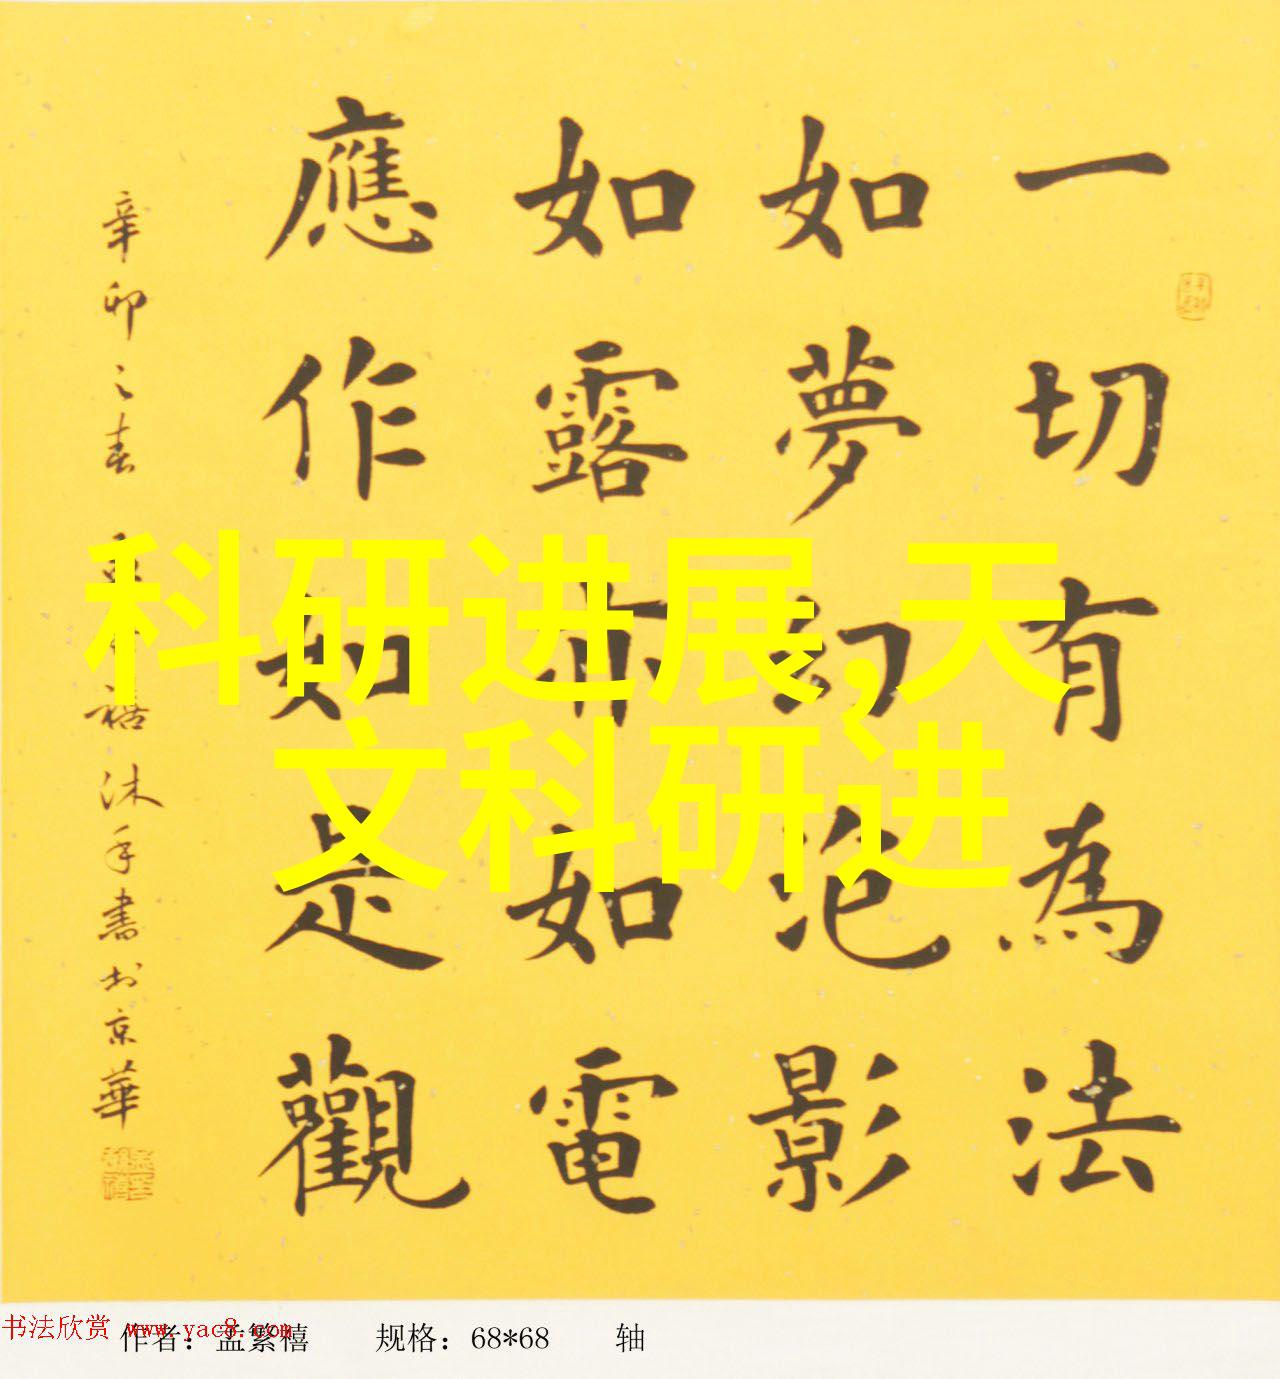 一切有為法
如夢幻泡影
如露亦如電
應作如是觀
辛卯之春 孟繁禧沐手書於京華
科研进展,天
文科研进
书法欣赏 www.yac8.com
作者：孟繁禧 规格：68*68 轴